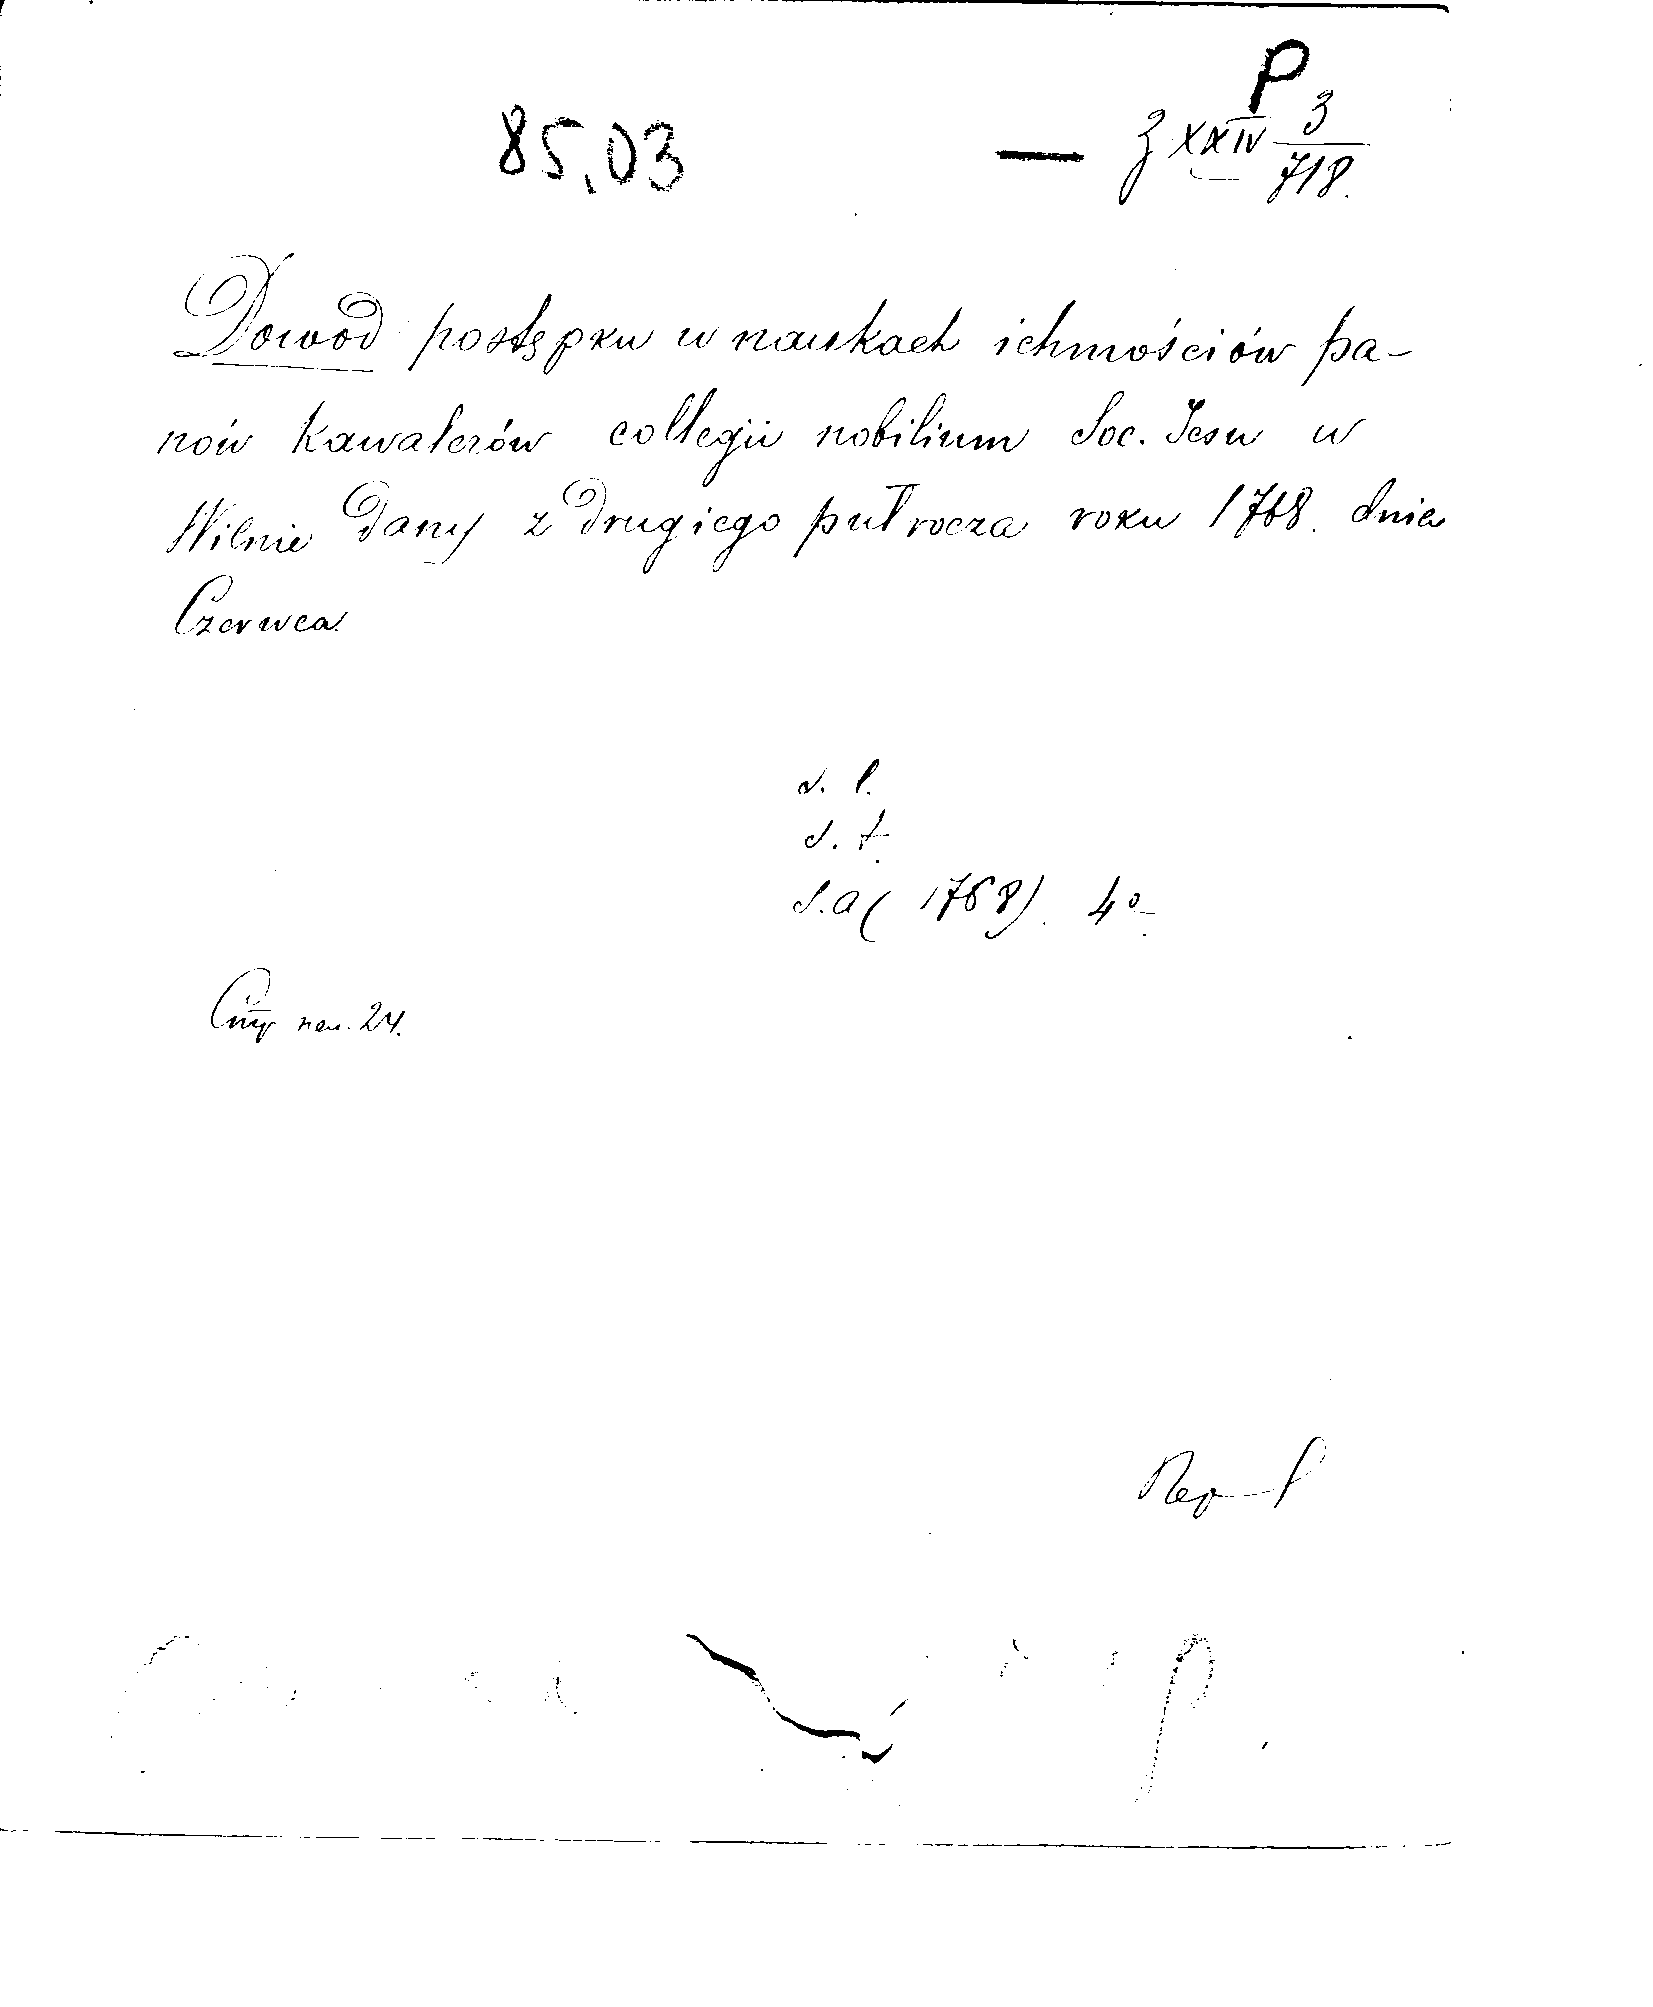 P
85,03 — З XXIV 3/718.
Dowod postępku w naukach ichmościów pa-
nów kawalerów collegii nobilium Soc. Jesu w
Wilnie dany z drugiego pułrocza roku 1768. dnia
Czerwca
s. l.
s. t.
s. a (1768). 4°
Стр нен. 24.